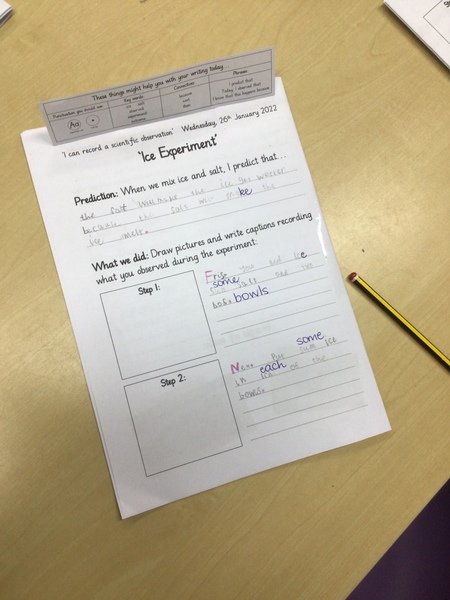 These things might help you with your writing today...
Punctuation you should use:
Aa
.
Key words:
ice salt
observed
experiment
Connectives:
because
and
then
Phrases:
I predict that
Today, I observed that
I know that this happens because
'I can record a scientific observation' Wednesday, 26th January 2022
'Ice Experiment'
Prediction: When we mix ice and salt, I predict that...
the salt will make the ice get weaker
because the salt will make the
ice melt.
What we did: Draw pictures and write captions recording
what you observed during the experiment:
Step 1:
you ice
some salt
bowls
Step 2:
Next put some ice
in each of the
bowls.